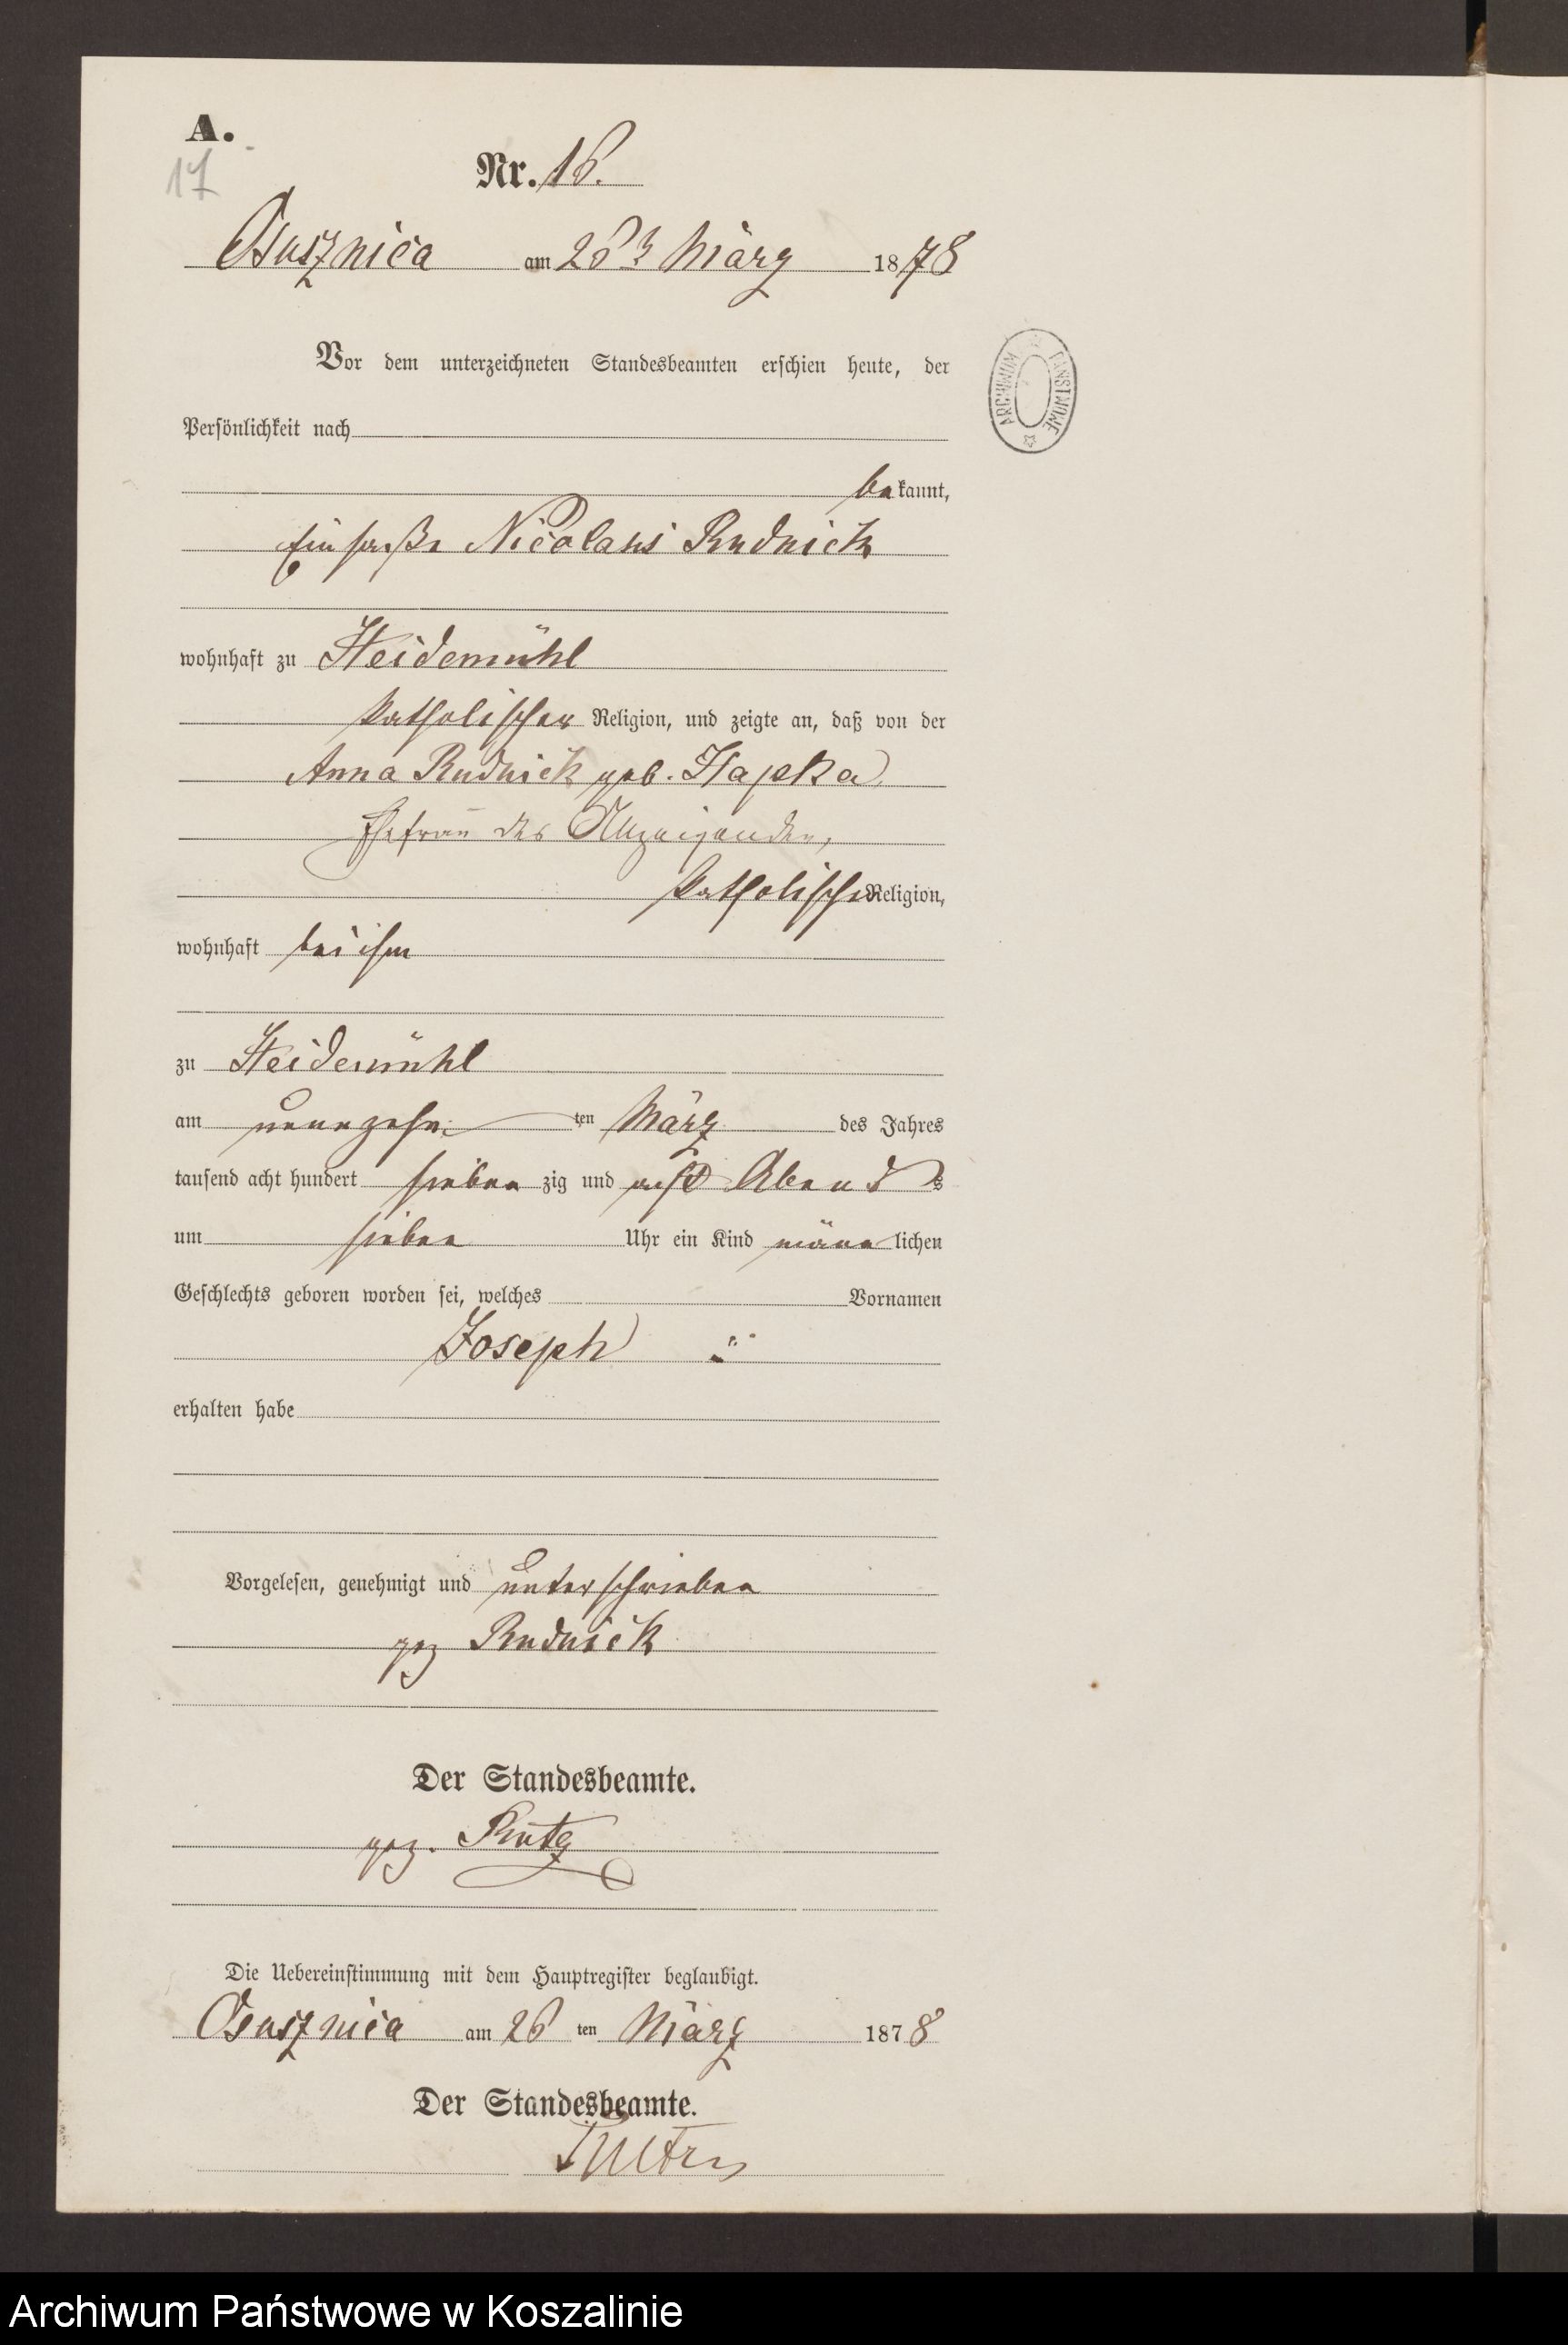 A.
17
Nr. 16.
Osusznica am 26 März 1878
Vor dem unterzeichneten Standesbeamten erschien heute, der
Persönlichkeit nach
bekannt,
Einsaße Nicolaus Rudnick
wohnhaft zu Heidemühl
katholischer Religion, und zeigte an, daß von der
Anna Rudnick geb. Hapka
Ehefrau des Anzeigenden,
katholischer Religion,
wohnhaft bei ihm
zu Heidemühl
am neunzehn ten März des Jahres
tausend acht hundert sieben zig und acht Abends
um sieben Uhr ein Kind männlichen
Geschlechts geboren worden sei, welches Vornamen
Joseph
erhalten habe
Vorgelesen, genehmigt und unterschrieben
gez Rudnick
Der Standesbeamte.
gez.
Die Uebereinstimmung mit dem Hauptregister beglaubigt.
Osusznica am 26 ten März 1878
Der Standesbeamte.
ARCHIWUM PAŃSTWOWE
Archiwum Państwowe w Koszalinie